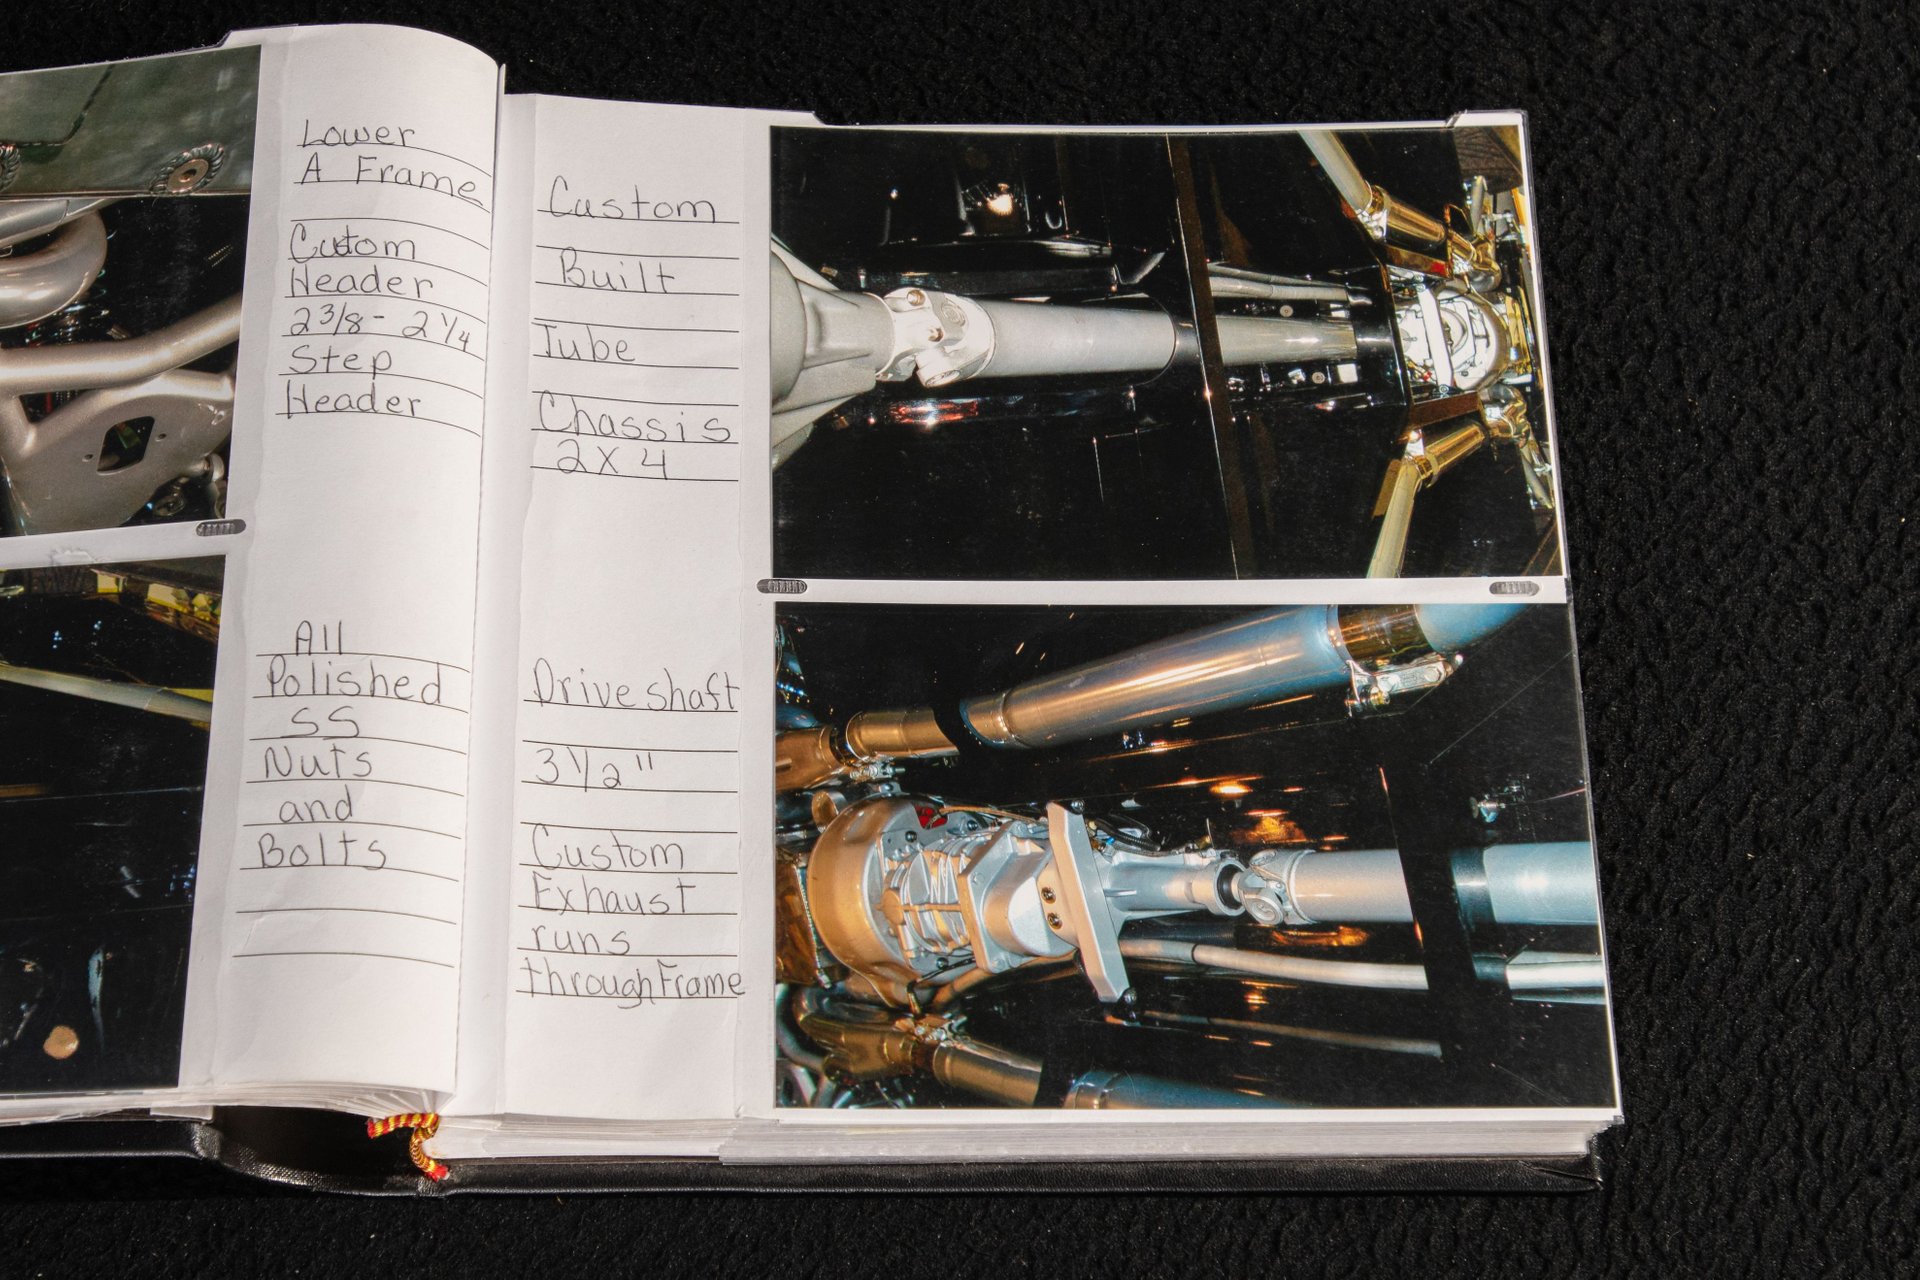 Lower
A Frame
Custom
Header
2 3/8 - 2 1/4
Step
Header
All
Polished
SS
Nuts
and
Bolts
Custom
Built
Tube
Chassis
2 X 4
Drive shaft
3 1/2"
Custom
Exhaust
runs
through Frame